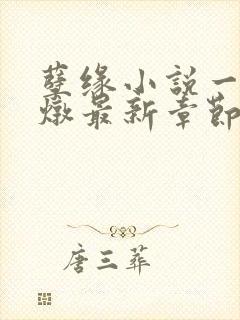 孽缘小説一
燉最新章節
唐三葬